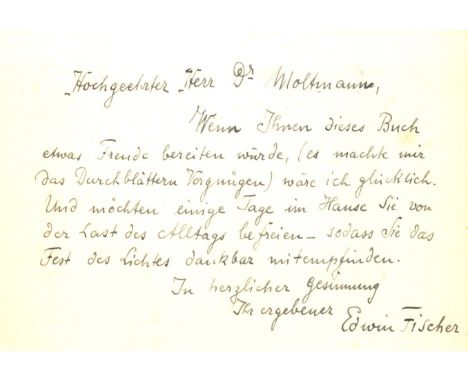 Hochgeehrter Herr Dr Moltmann,
Wenn Ihnen dieses Buch
etwas Freude bereiten würde, (es machte mir
das Durchblättern Vergnügen) wäre ich glücklich.
Und möchten einige Tage im Hause Sie von
der Last des Alltags befreien – sodass Sie das
Fest des Lichtes dankbar mitempfinden.
In herzlicher Gesinnung
Ihr ergebener Edwin Fischer